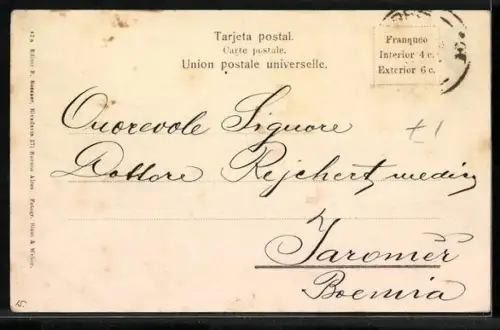 Tarjeta postal.
Carte postale.
Union postale universelle.
Franqueo
Interior 4 c.
Exterior 6 c.
Onorevole Signore
Dottore Rejchert medic
Jaromeř
Boemia
15.